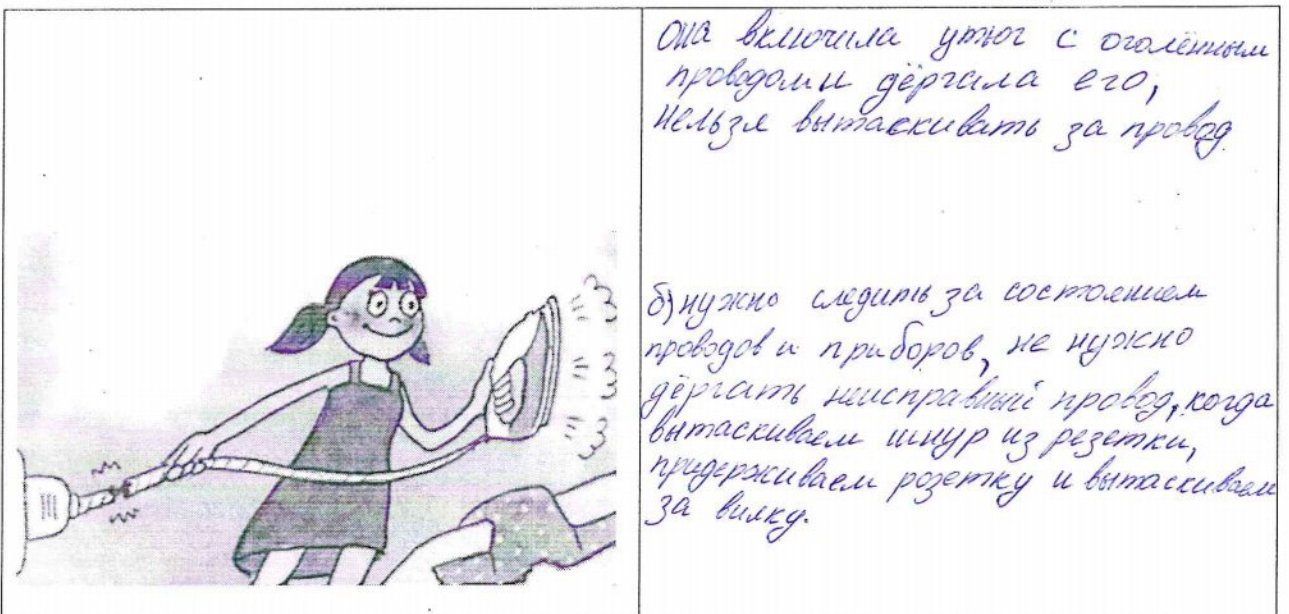 она включила утюг с оголённым
проводом и дёргала его,
нельзя вытаскивать за провод
б) нужно следить за состоянием
проводов и приборов, не нужно
дёргать неисправный провод, когда
вытаскиваем шнур из резетки,
придерживаем розетку и вытаскиваем
за вилку.